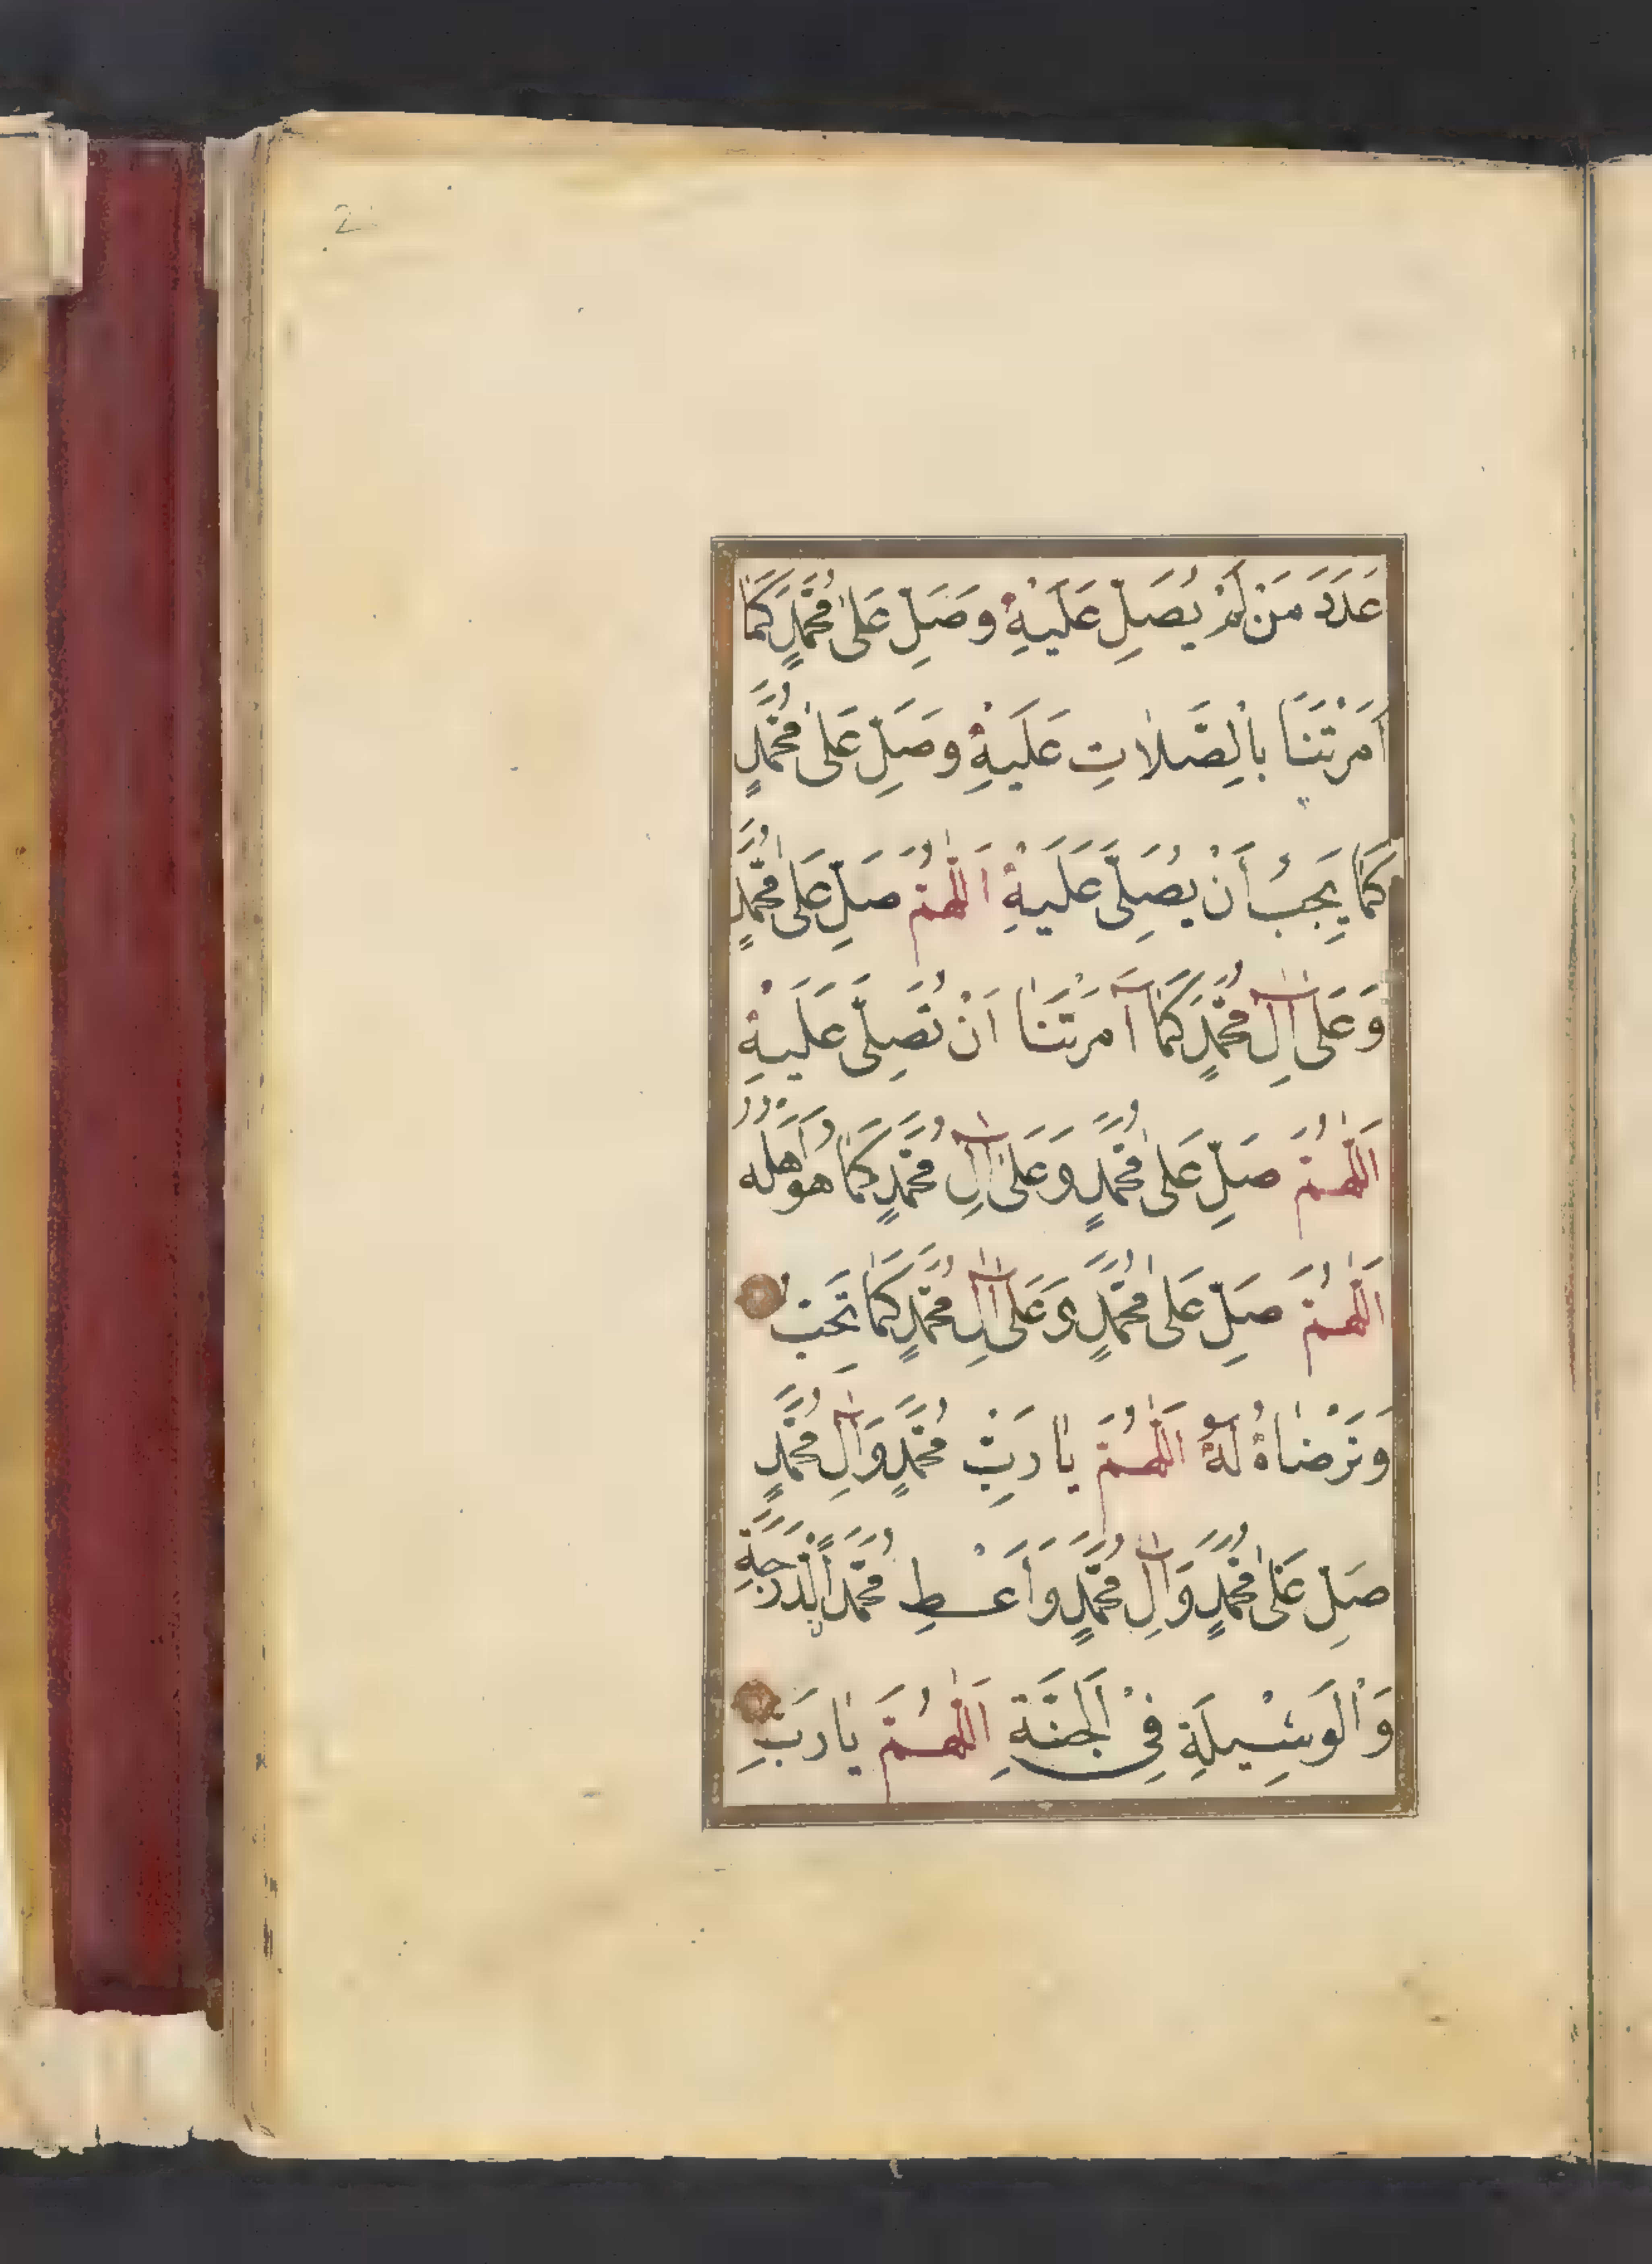 2
عَدَدَ مَنْ لَمْ يُصَلِّ عَلَيْهِ وَصَلِّ عَلٰى مُحَمَّدٍ كَمَا
اَمَرْتَنَا بِالصَّلَاتِ عَلَيْهِ وَصَلِّ عَلٰى مُحَمَّدٍ
كَمَا يَجِبُ أَنْ يُصَلِّىَ عَلَيْهِ اَللّٰهُمَّ صَلِّ عَلٰى مُحَمَّدٍ
وَعَلٰى اٰلِ مُحَمَّدٍ كَمَا آمَرْتَنَا اَنْ نُصَلِّىَ عَلَيْهِ
اَللّٰهُمَّ صَلِّ عَلٰى مُحَمَّدٍ وَعَلٰى اٰلِ مُحَمَّدٍ كَمَا هُوَ اَهْلُهُ
اَللّٰهُمَّ صَلِّ عَلٰى مُحَمَّدٍ وَعَلٰى اٰلِ مُحَمَّدٍ كَمَا تُحِبُّ
وَتَرْضَاهُ لَهُ اَللّٰهُمَّ يَا رَبِّ مُحَمَّدٍ وَاٰلِ مُحَمَّدٍ
صَلِّ عَلٰى مُحَمَّدٍ وَاٰلِ مُحَمَّدٍ وَاَعْطِ مُحَمَّدًا الدَّرَجَةَ
وَالْوَسِيْلَةِ فِىْ الْجَنَّةِ اَللّٰهُمَّ يَا رَبِّ